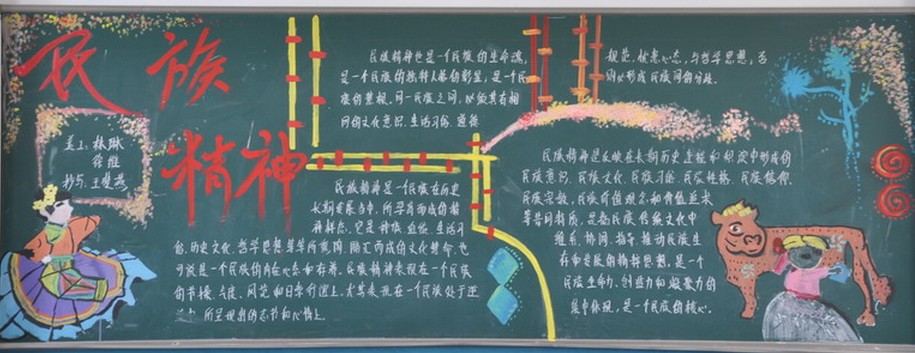 民族
精神
美工：林琳
徐维
抄写：王斐燕
民族精神也是一个民族的生命魂，
是一个民族的独特人格的彰显，是一个民
族的慧根。同一民族之间，以颁其有相
同的文化意识、生活习俗、道德
规范、价值心态，与哲学思想，否
则必形成民族间的分歧。
民族精神是一个民族在历史
长期发展当中，所孕育而成的精
神样态。它是种族、血统、生活习
俗、历史文化、哲学思想等等所熏陶、融汇而成的文化慧命，也
可说是一个民族的内在心态和存养。民族精神表现在一个民族
的节操、气度、风范和日常行谊上，尤其表现在一个民族处于逆
所呈现出的志节和心情上。
民族精神是反映在长期历史进程和积淀中形成的
民族意识、民族文化、民族习俗、民族性格、民族信仰、
民族宗教，民族价值观念和价值追求
等共同特质，是指民族传统文化中
维系、协调、指导、推动民族生
存和发展的精粹思想，是一个
民族生命力、创造力和凝聚力的
集中体现，是一个民族的核心。